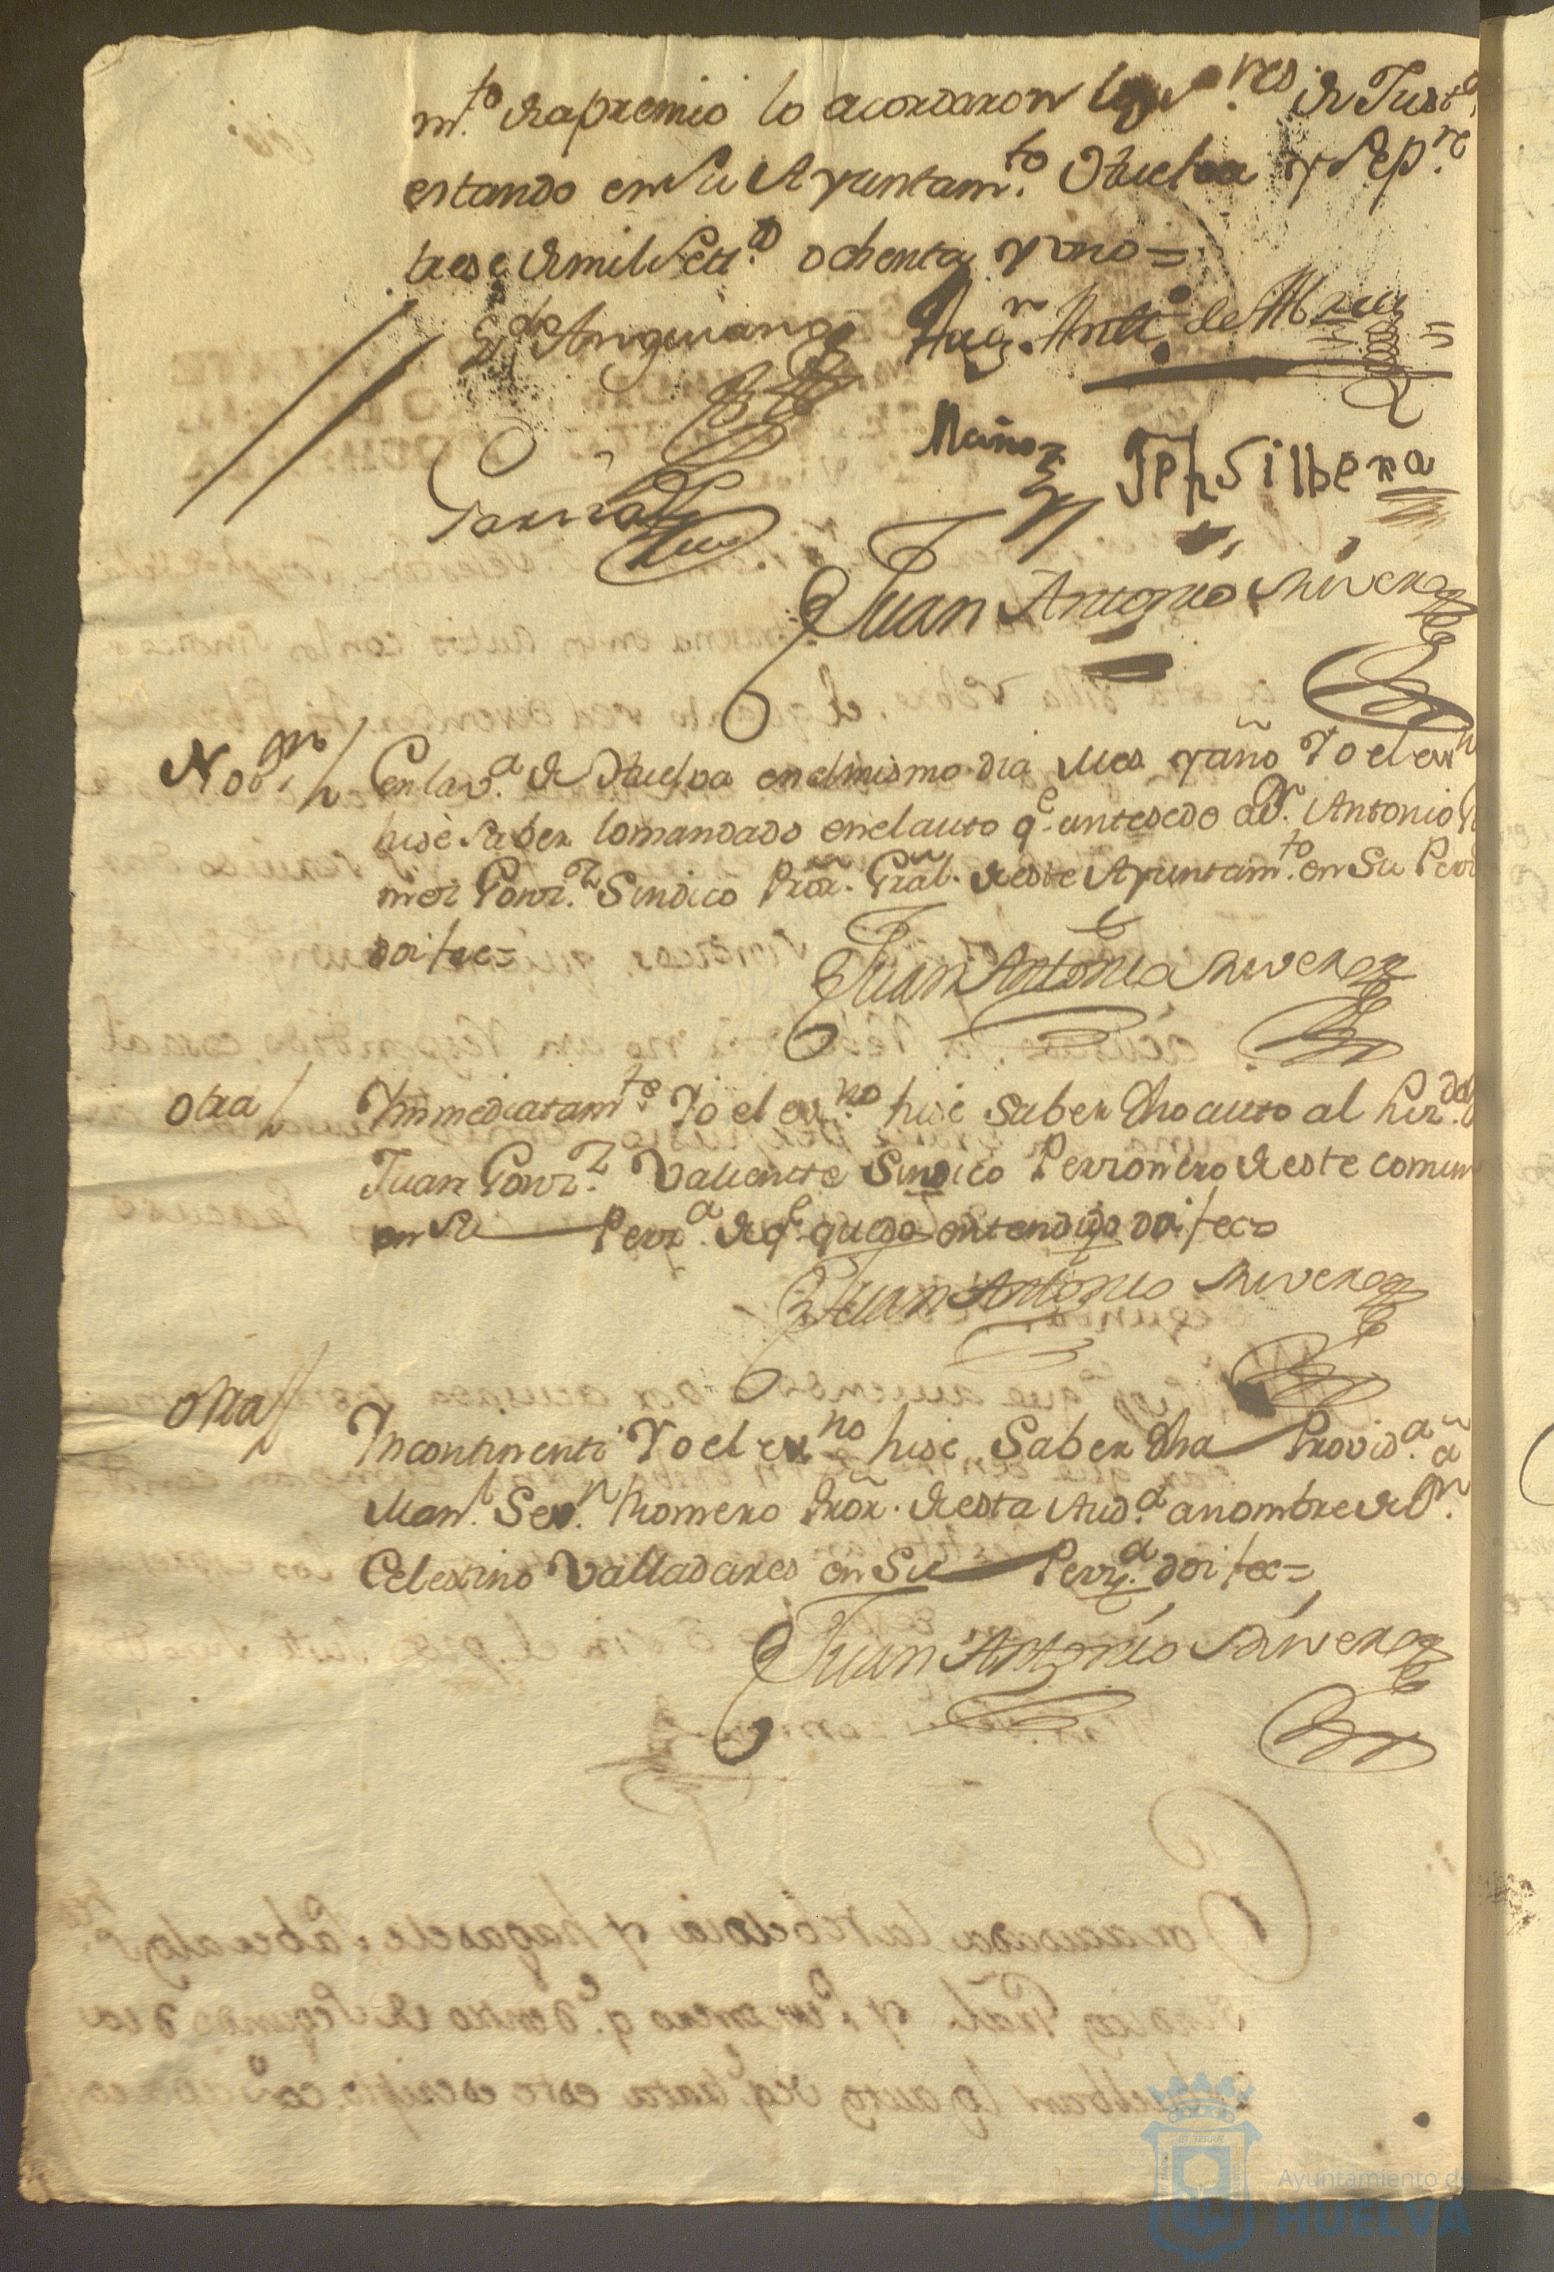 m.to de apremio lo acordaron los s.res de Just.a
estando en su Ayuntam.to Huelva y Sep.re
trese de mil Sett.s ochenta y uno =
L.do Anguiano Ant.o de
Muñoz Jph Silbera
Garrido
Juan Antonio Rivera
Not.on En la v.a de Huelva en el mismo dia mes y año Yo el es.no
hise saber lo mandado en el auto q.e antesede a D.n Antonio
Gonz.z Sindico Pror. Gral. de este Ayuntam.to en su Perz
doi fee =
Juan Antonio Rivera
Otra Ynmediatam.te Yo el es.no hise saber dho auto al
Juan Gonz.z Valiente Sindico Perzonero de este comun
en su Perz.a de q.e quedo entendido doi fee =
Juan Antonio Rivera
Otra Yncontinenti Yo el es.no hise saber dha Provid.a a
Man.l Seb.n Romero Pror. de esta Aud.a a nombre de D.n
Celestino Valladares en su Perz.a doi fee =
Juan Antonio Rivera
Ayuntamiento de
HUELVA